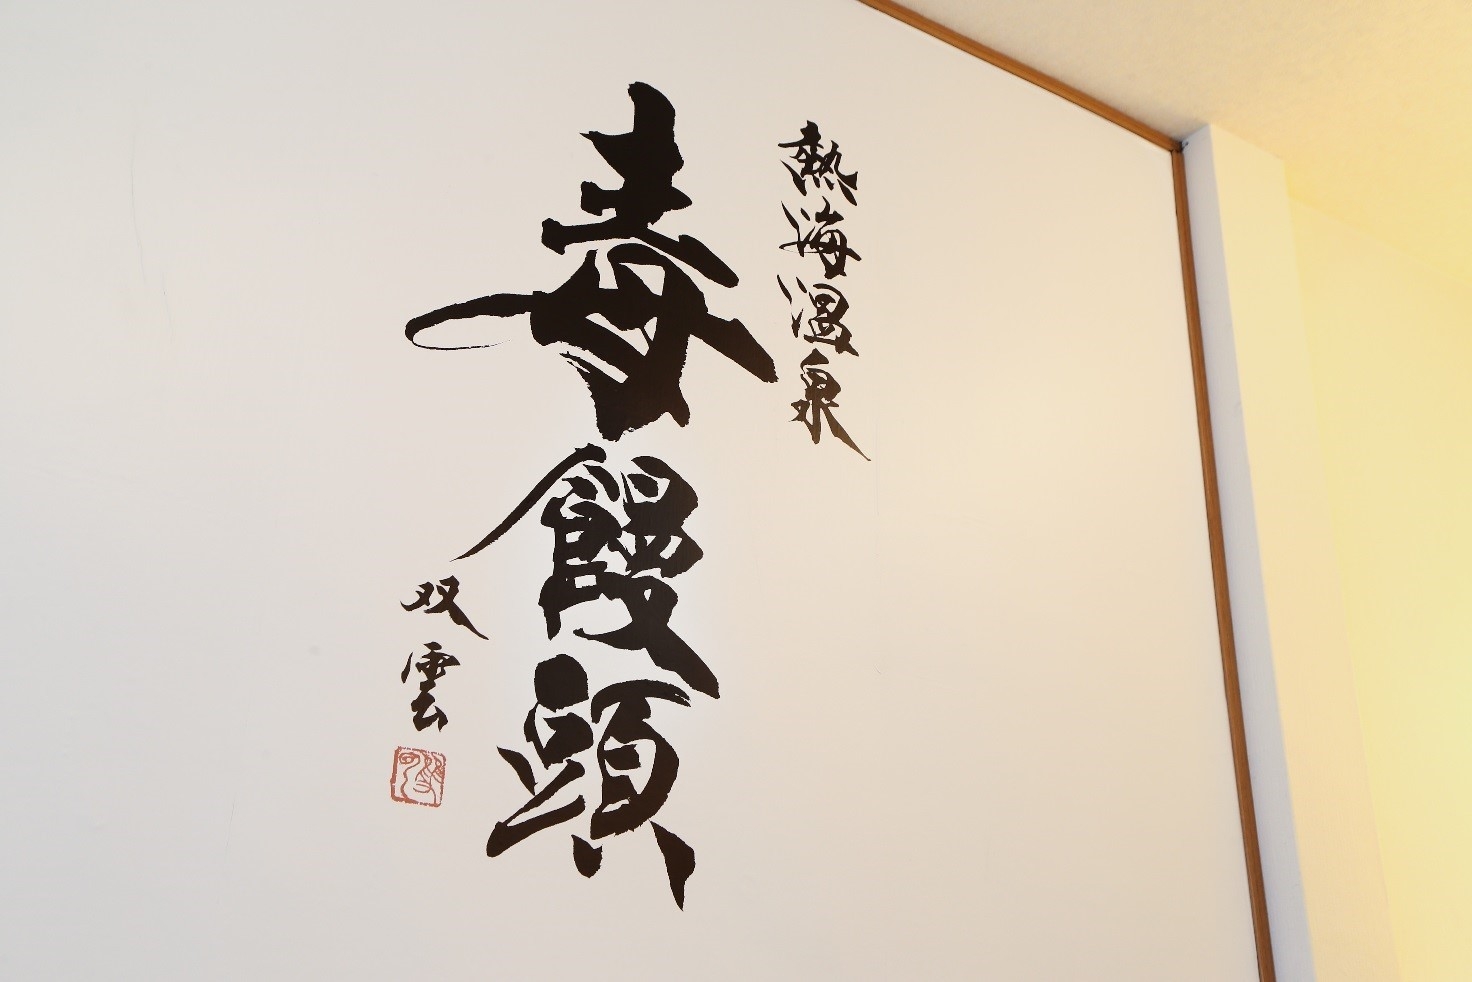 熱海温泉
毒饅頭
双雲